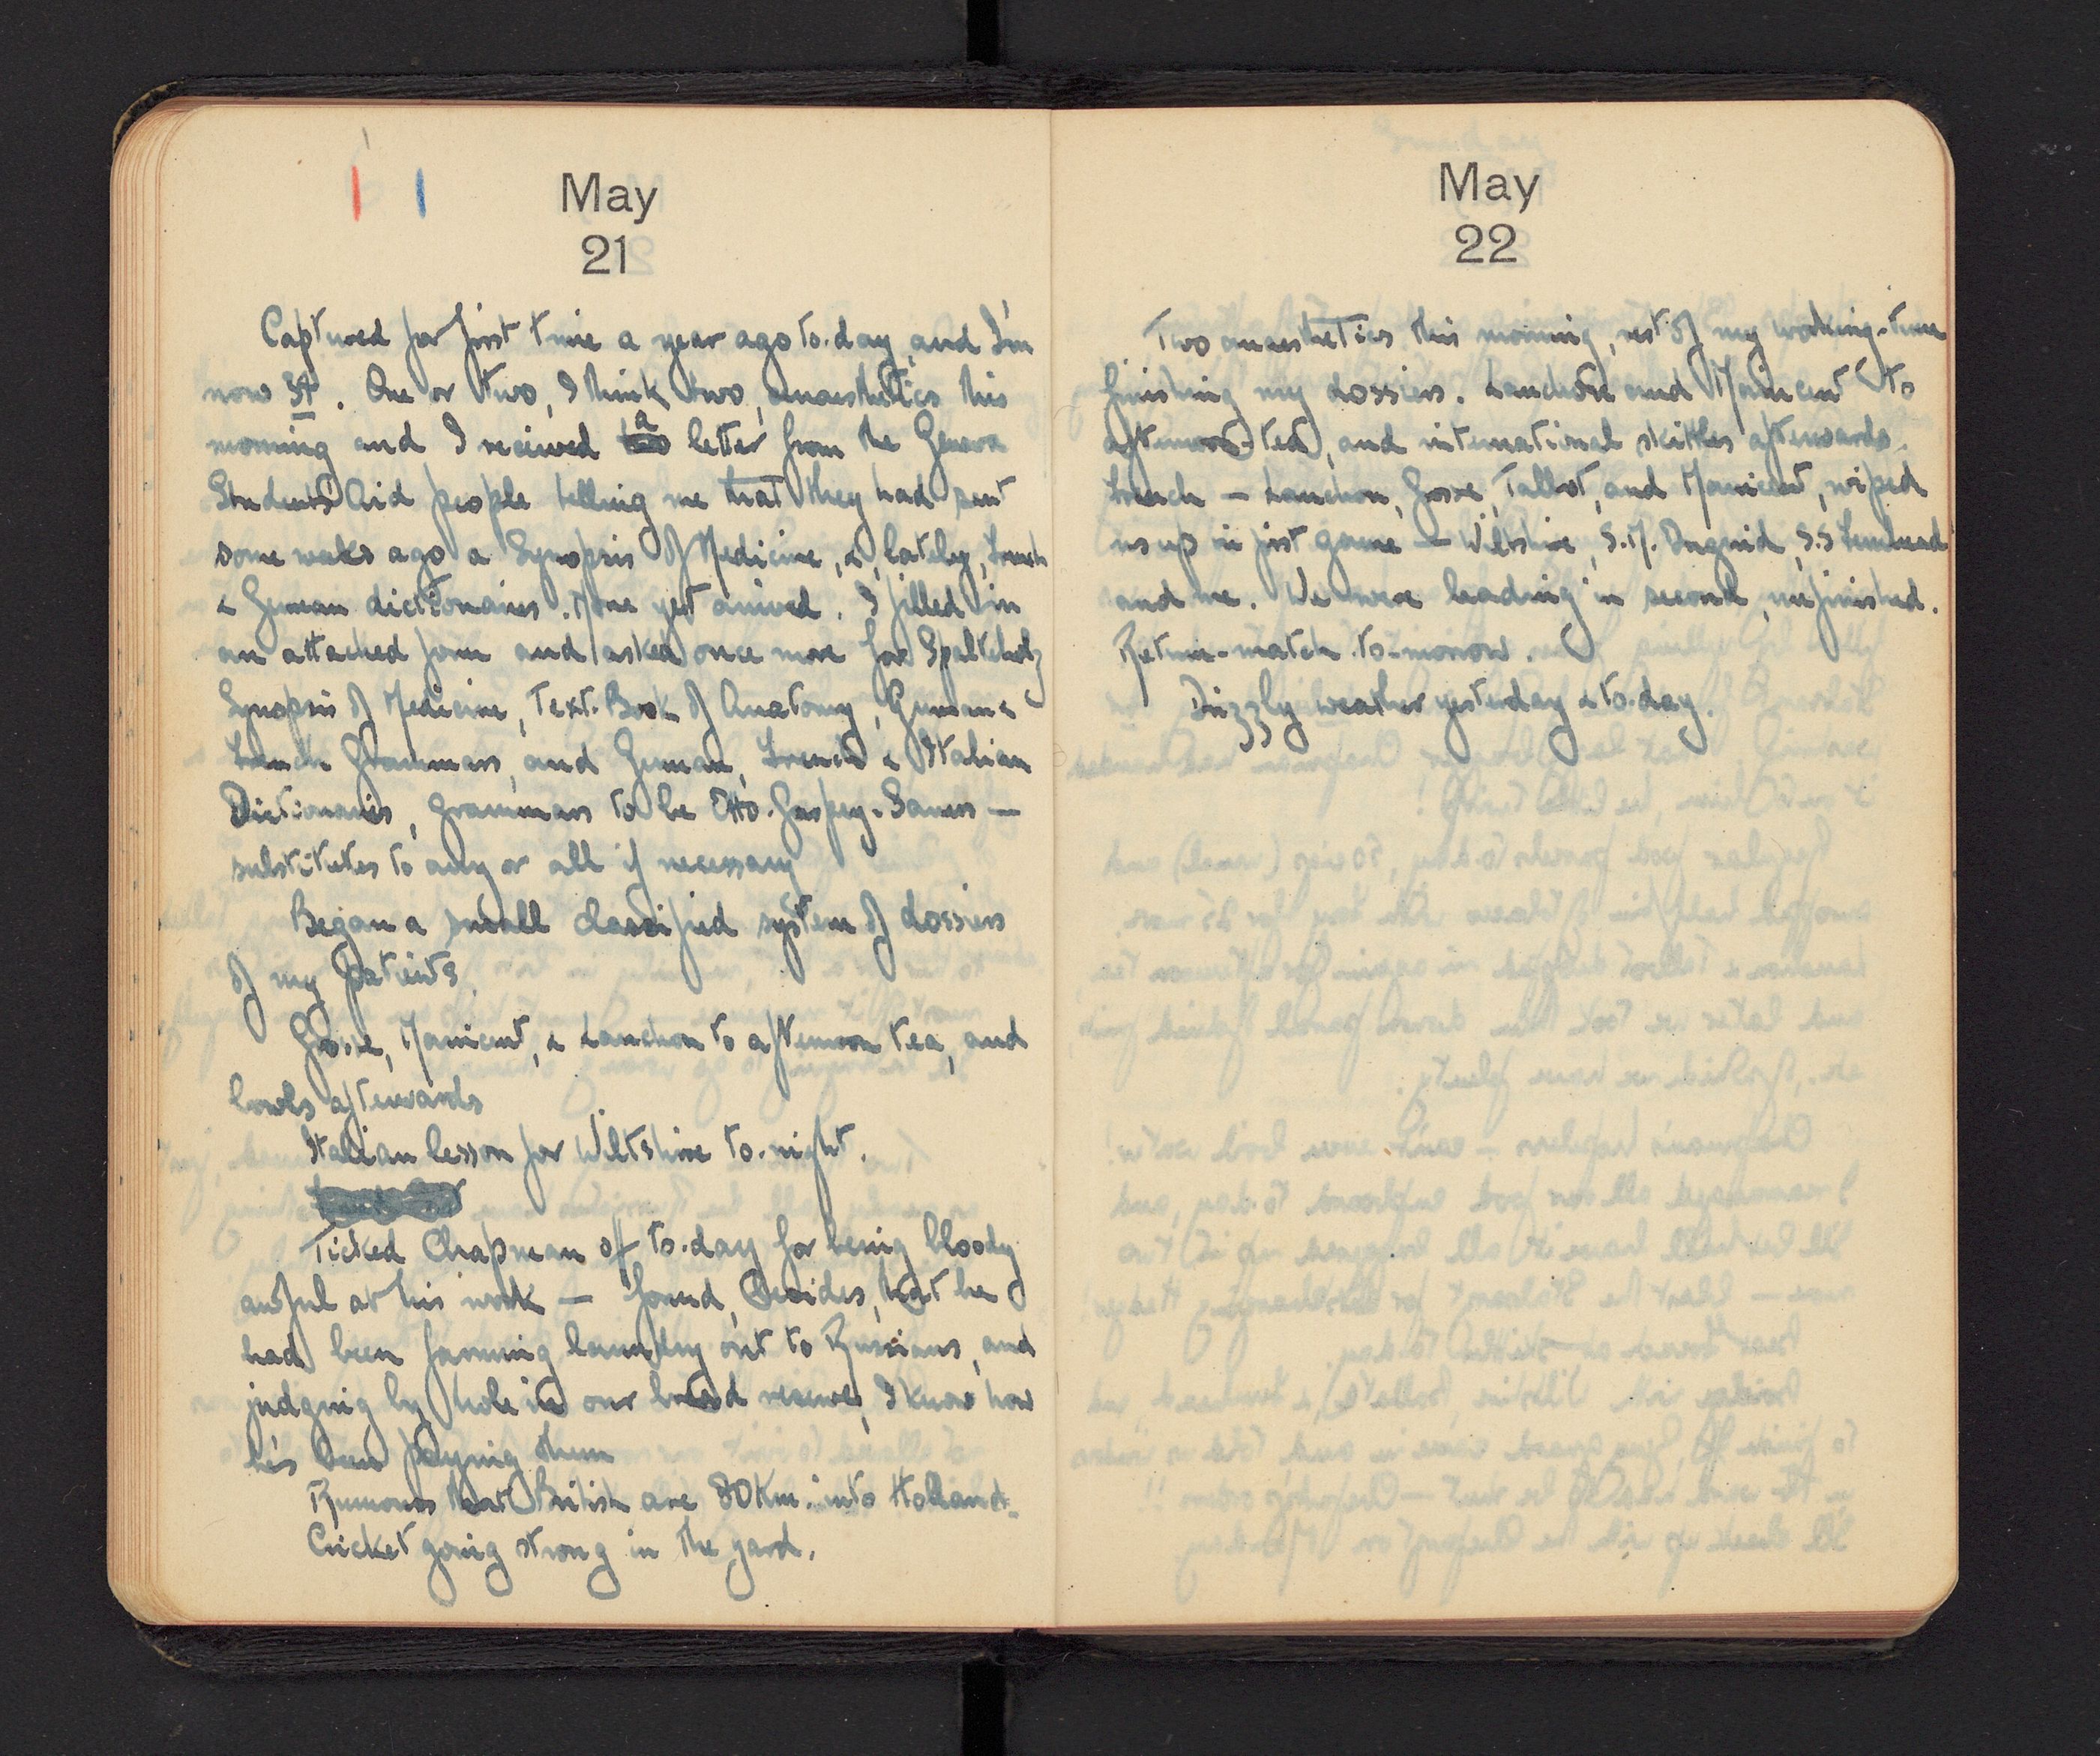 May
21
Captured for first time a year ago to-day, and I'm
now 34. One or two, I think two, anaesthetics this
morning and I received a letter from the Geneva
Students Aid people telling me that they had sent
some weeks ago a Synopsis of Medicine, &, lately, French
& German dictionaries. None yet arrived. I filled in
an attached form and asked once more for Spalteholz,
Synopsis of Medicine, Text-Book of Anatomy, German &
French Grammars, and German, French & Italian
Dictionaries, grammars to be Otto-Gaspey-Sauer —
substitutes to any or all if necessary
Began a small classified system of dossiers
of my patients.
Gosse, Manicent, & Lanchon to afternoon tea, and
bowls afterwards
Italian lesson for Wiltshire to-night.
Ticked Chapman off to-day for being bloody
awful at his work — found, besides, that he
had been farming laundry out to Russians, and
judging by hole in our bread reserve, I know how
he's been paying them
Rumours that British are 80 Km. into Holland.
Cricket going strong in the yard.
May
22
Two anaesthetics this morning, rest of my working-time
finishing my dossiers. Lanchon and Manicent to
afternoon-tea, and international skittles afterwards.
French — Lanchon, Gosse, Talbot, and Manicent, wiped
us up in first game — Wiltshire, S.M. Duguid, S.S
and me. We were leading in second, unfinished.
Return-match to-morrow.
Drizzly weather yesterday & to-day.